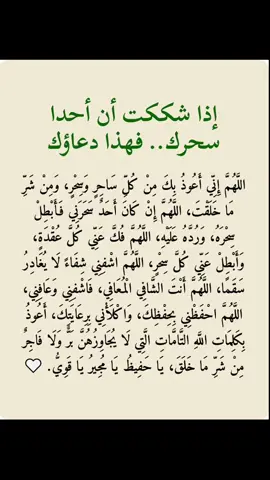 إذا شككت أن أحدا
سحرك.. فهذا دعاؤك
اللَّهُمَّ إِنِّي أَعُوذُ بِكَ مِنْ كُلِّ سَاحِرٍ وَسِحْرٍ، وَمِنْ شَرِّ
مَا خَلَقْتَ، اللَّهُمَّ إِنْ كَانَ أَحَدٌ سَحَرَنِي فَأَبْطِلْ
سِحْرَهُ، وَرُدَّهُ عَلَيْهِ، اللَّهُمَّ فُكَّ عَنِّي كُلَّ عُقْدَةٍ،
وَأَبْطِلْ عَنِّي كُلَّ سِحْرٍ، اللَّهُمَّ اشْفِنِي شِفَاءً لَا يُغَادِرُ
سَقَمًا، اللَّهُمَّ أَنْتَ الشَّافِي الْمُعَافِي، فَاشْفِنِي وَعَافِنِي،
اللَّهُمَّ احْفَظْنِي بِحِفْظِكَ، وَاكْلَأْنِي بِرِعَايَتِكَ، أَعُوذُ
بِكَلِمَاتِ اللَّهِ التَّامَّاتِ الَّتِي لَا يُجَاوِزُهُنَّ بَرٌّ وَلَا فَاجِرٌ
مِنْ شَرِّ مَا خَلَقَ، يَا حَفِيظُ يَا مُجِيرُ يَا قَوِيُّ. 🤍